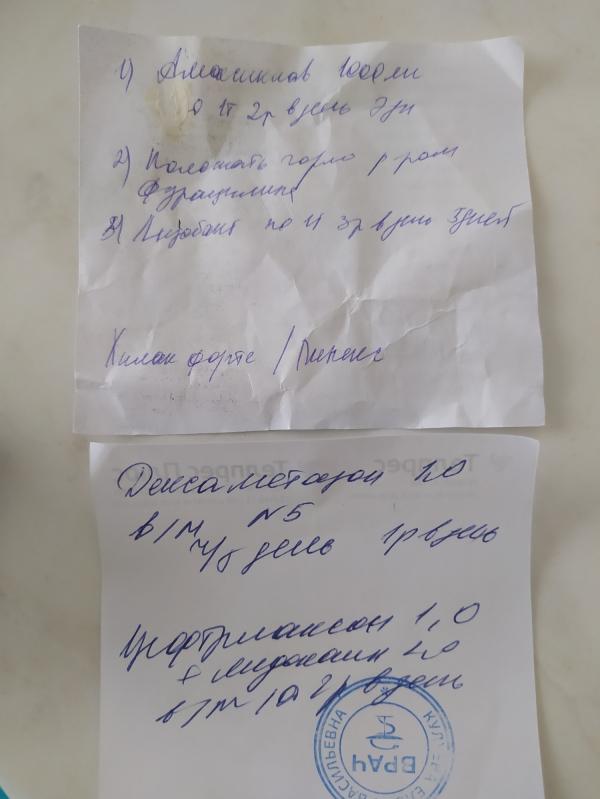 1) Амоксиклав 1000 мг
по 1т 2р в день 7дн
2) Полоскать горло р-ром
Фурацилина
3) Лизобакт по 1т 3р в день 5дней
Хилак форте / Линекс
Дексаметазон 1,0
в/м N5
ч/з день 1р в день
Цефтриаксон 1,0
+ лидокаин 2,0
в/м 2р в день
ВРАЧ
ВАСИЛЬЕВНА